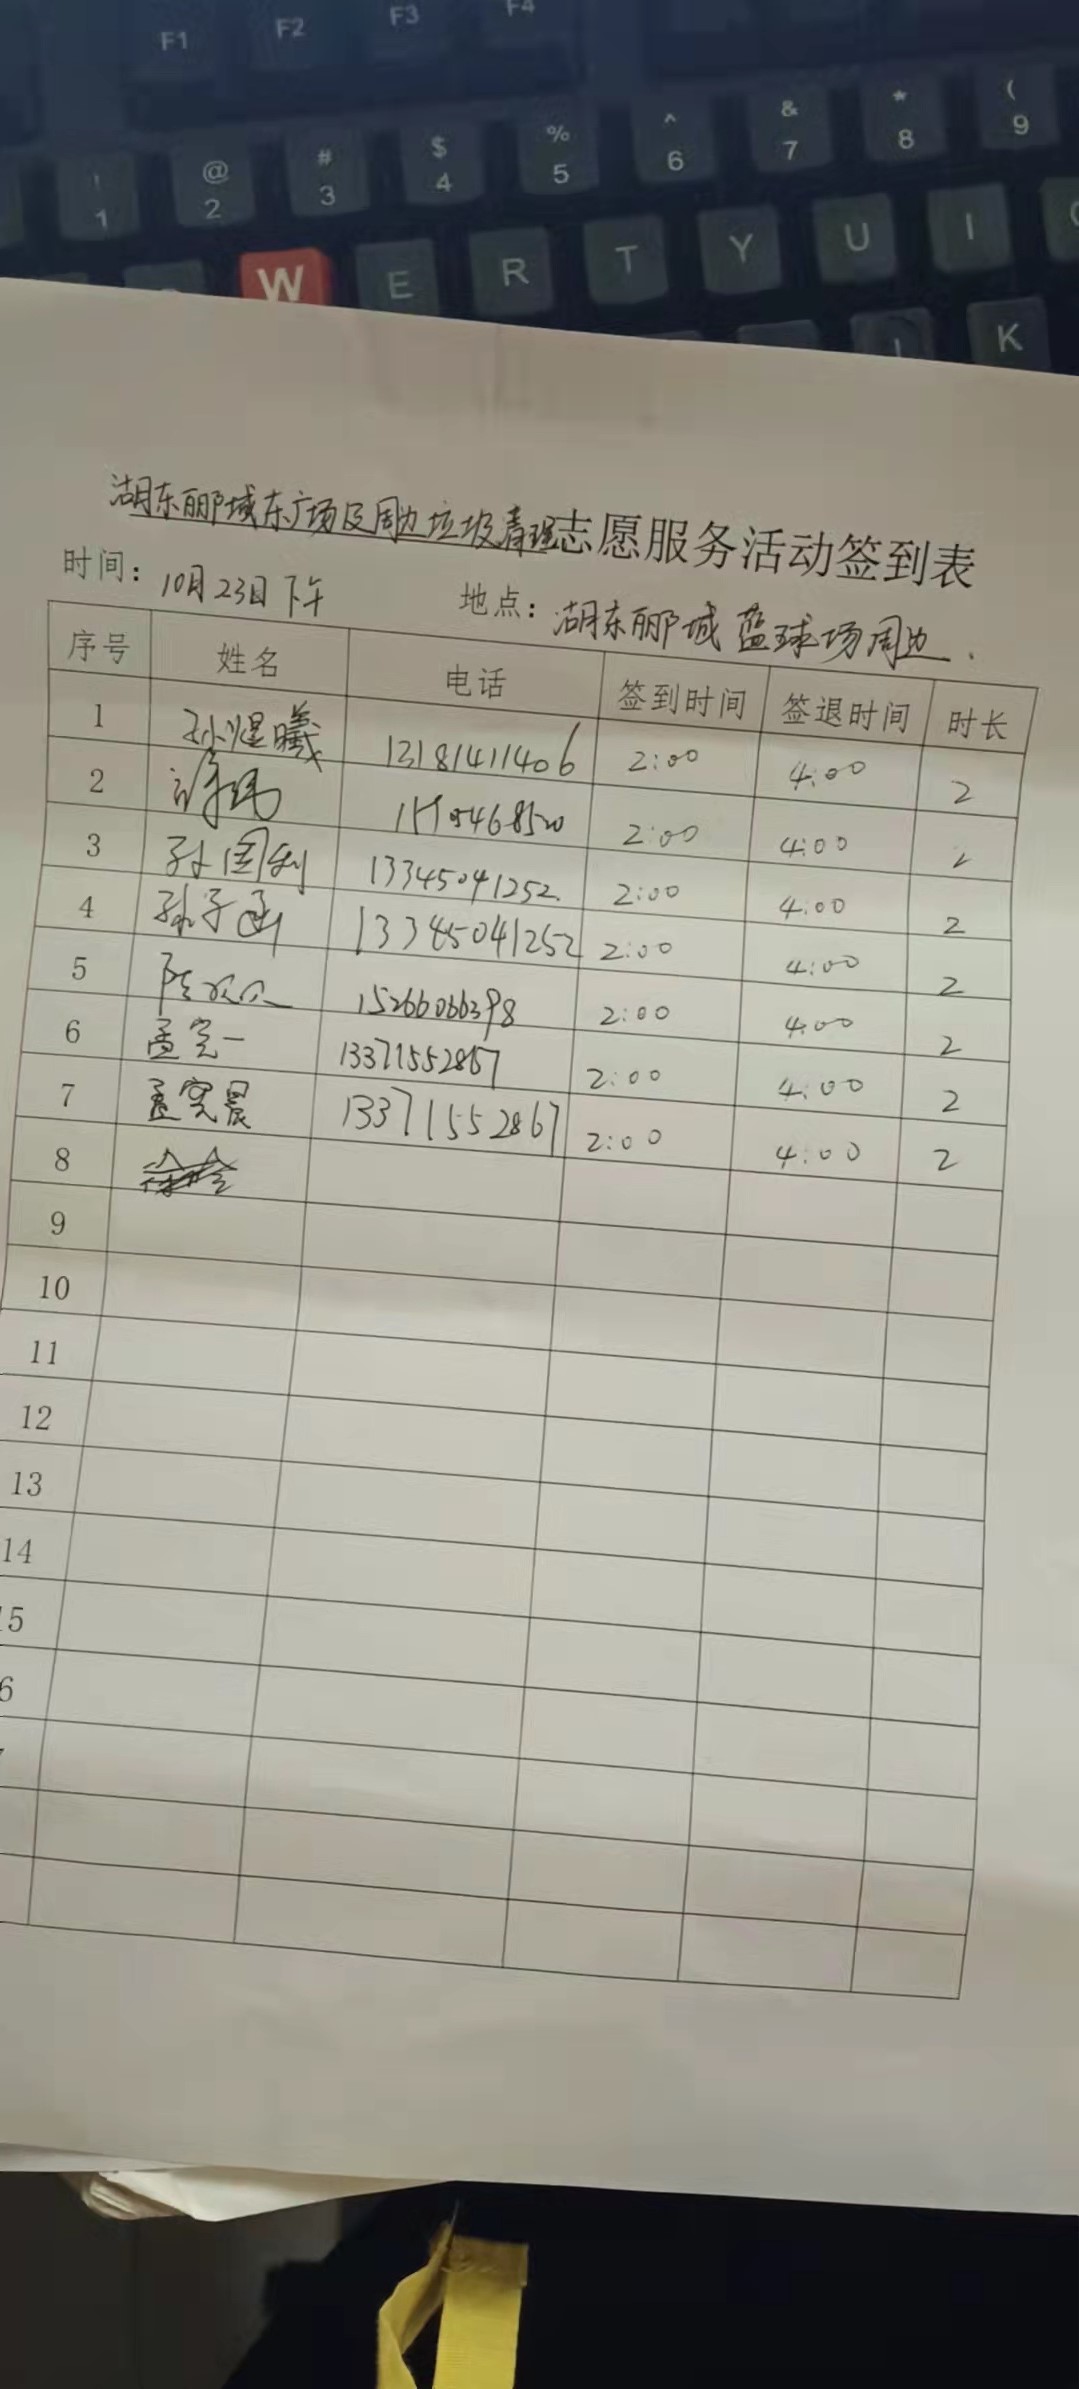 F1 F2 F3 F4
! 1 @ 2 # 3 $ 4 % 5 ^ 6 & 7 * 8 ( 9
W E R T Y U I
J K
湖东郦城东广场及周边垃圾清理志愿服务活动签到表
时间：10月23日下午 地点：湖东郦城篮球场周边.
序号 姓名 电话 签到时间 签退时间 时长
1 孙煜曦 13181411406 2:00 4:00 2
2 许 2:00 4:00 2
3 孙国利 13345041252. 2:00 4:00 2
4 孙子函 13345041252 2:00 4:00 2
5 陆 15266066398 2:00 4:00 2
6 孟宪一 13371552867 2:00 4:00 2
7 孟宪晨 13371552867 2:00 4:00 2
8
9
10
11
12
13
14
15
6